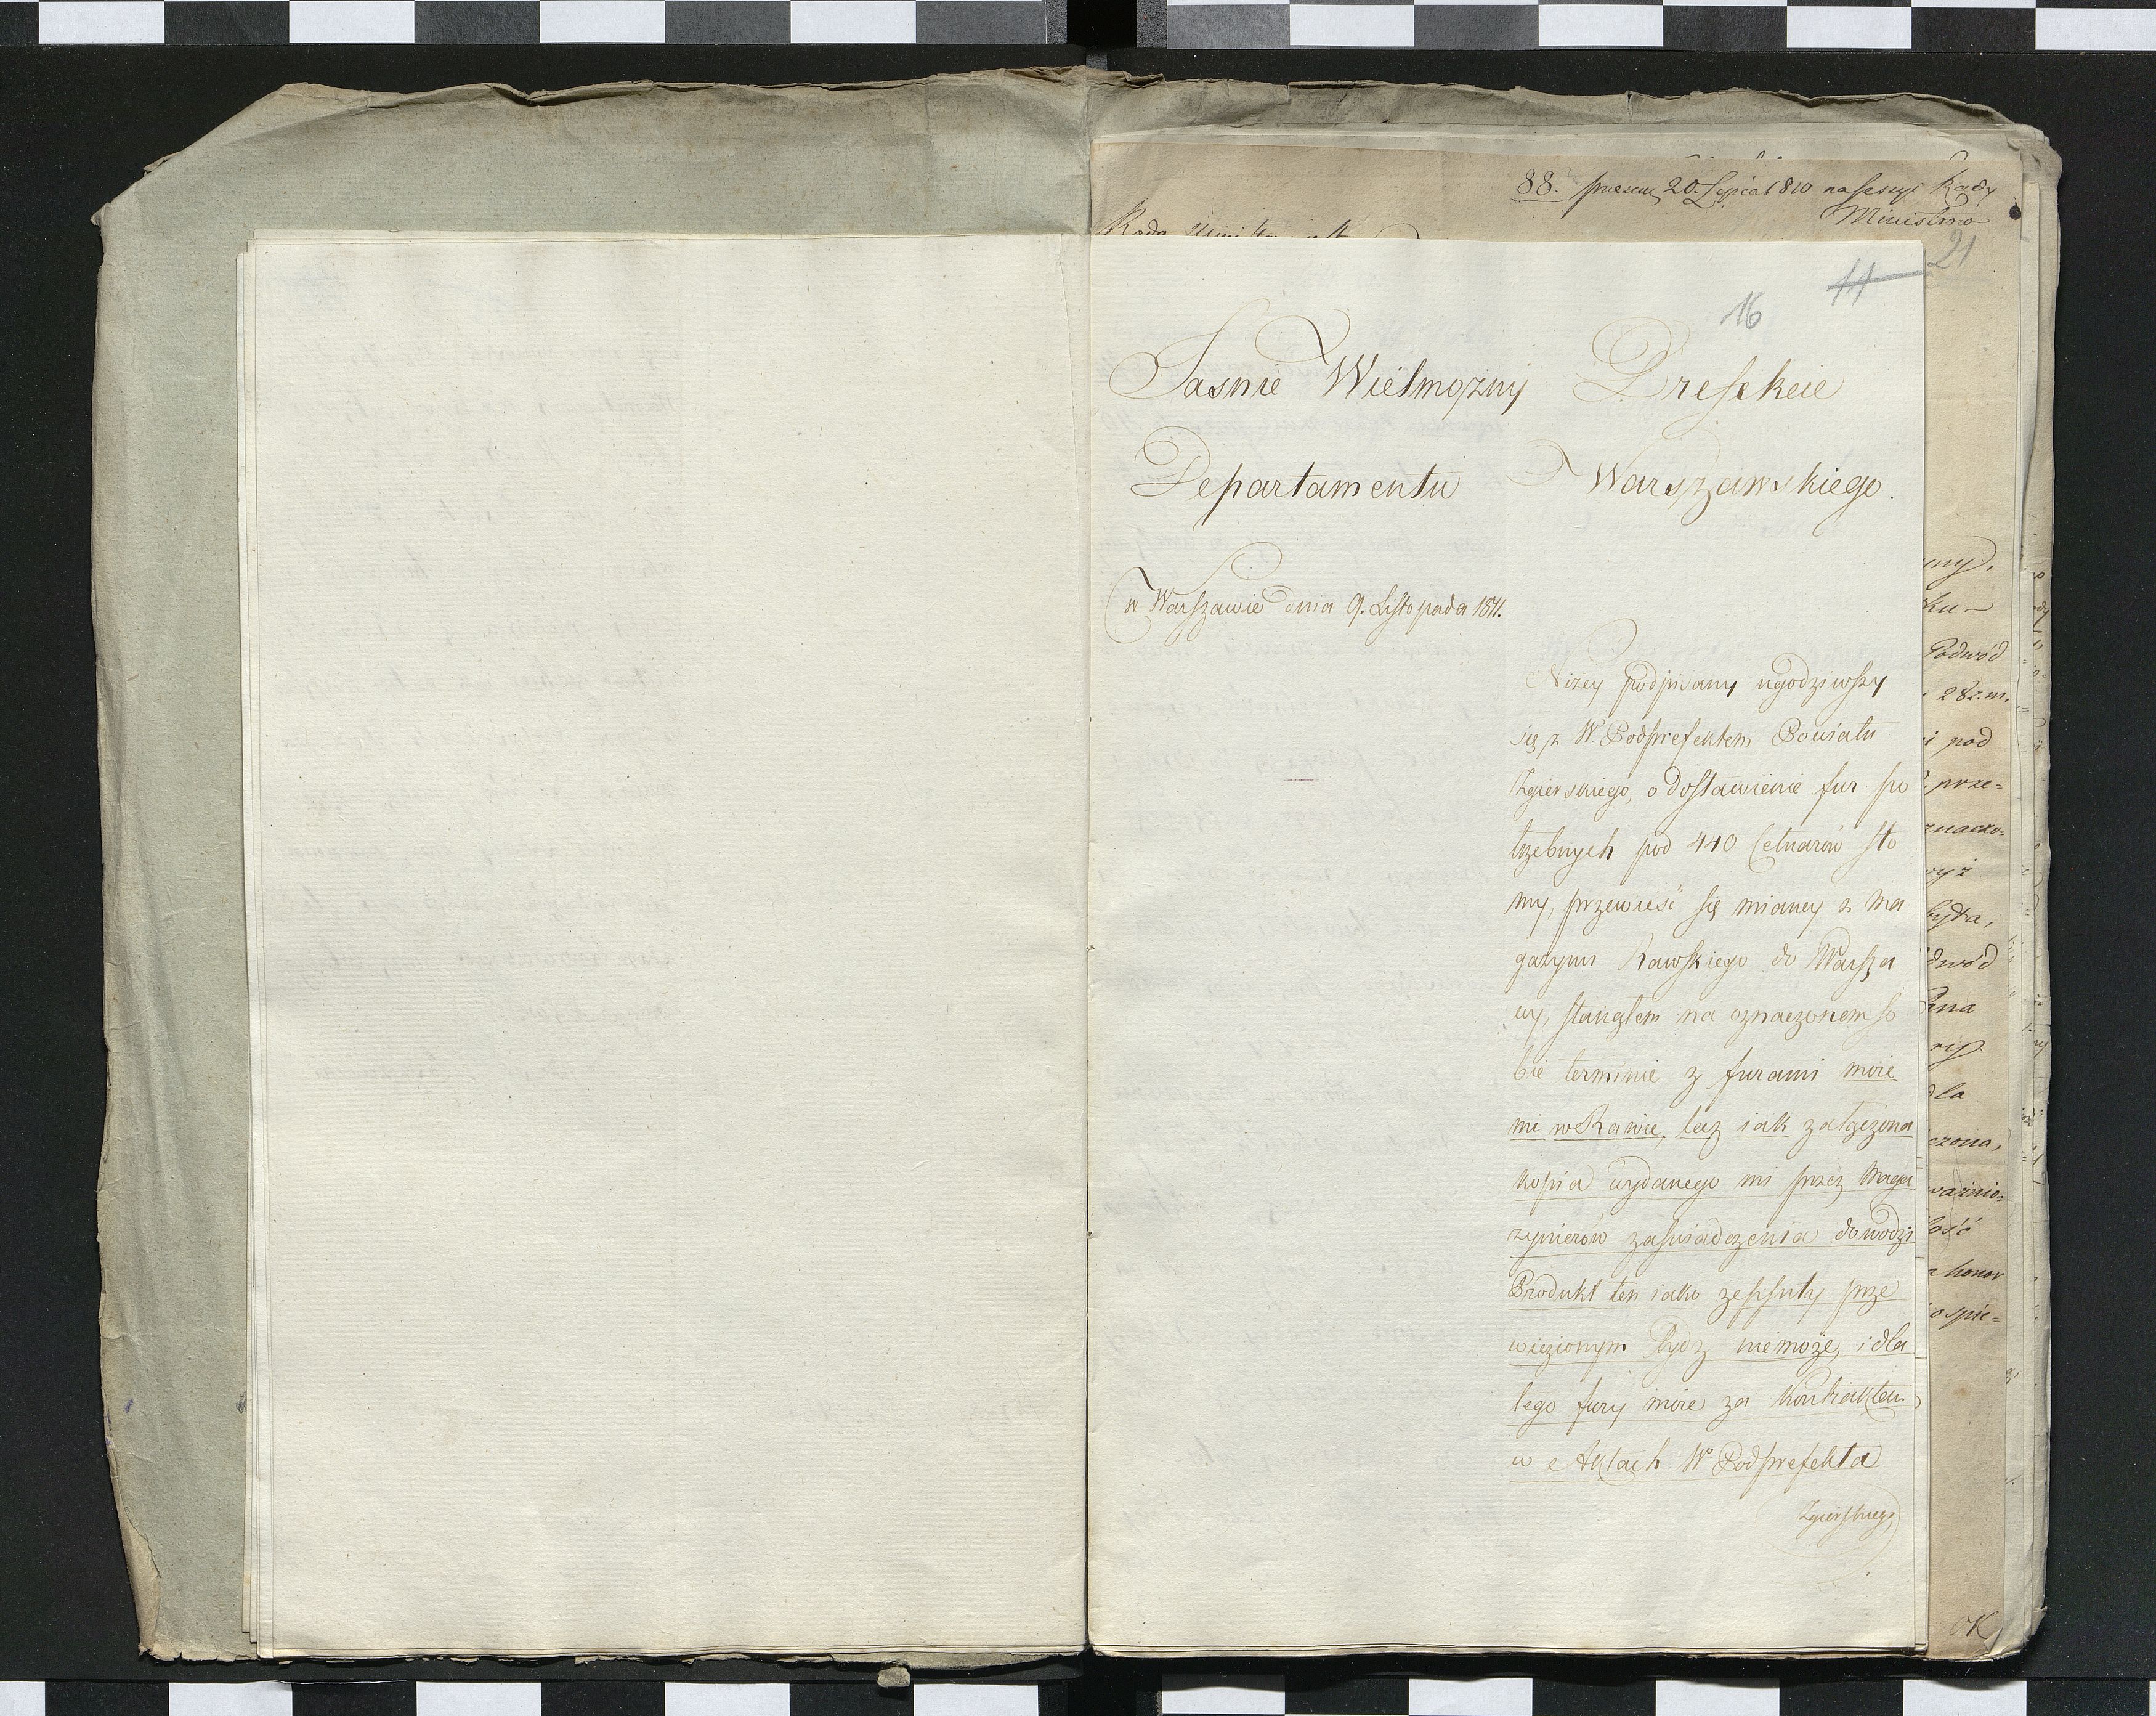 88. 20. Lipca 1810 na Sessyi Rady
Ministrow
21
11
16
Jasnie Wielmożny Prefekcie
Departamentu Warszawskiego.
w Warszawie dnia 9. Listopada 1811.
Niżey podpisany ugodziwszy
się z W. Podprefektem Powiatu
Zgierskiego, o dostawienie fur po
trzebnych pod 440 Cetnarów sło
my, przewieść się mianey z ma
gazynu Rawskiego do Warsza
wy, stanąłem na oznaczonem so
bie terminie z furami moie
mi w Rawie, lecz iak załączona
kopia wydanego mi przez Maga
zynierów zaświadczenia dowodzi
Produkt ten iako zepsuty prze
wiezionym bydz niemoże, i dla
tego fury moie za kontraktem
w Aktach Wo Podprefekta
Zgierskiego
ny,
ku-
Podwód
28
i pod
prze=
znaczo=
byđła,
dwód
dla
czona,
ważnio=
ość
honor
ospie=